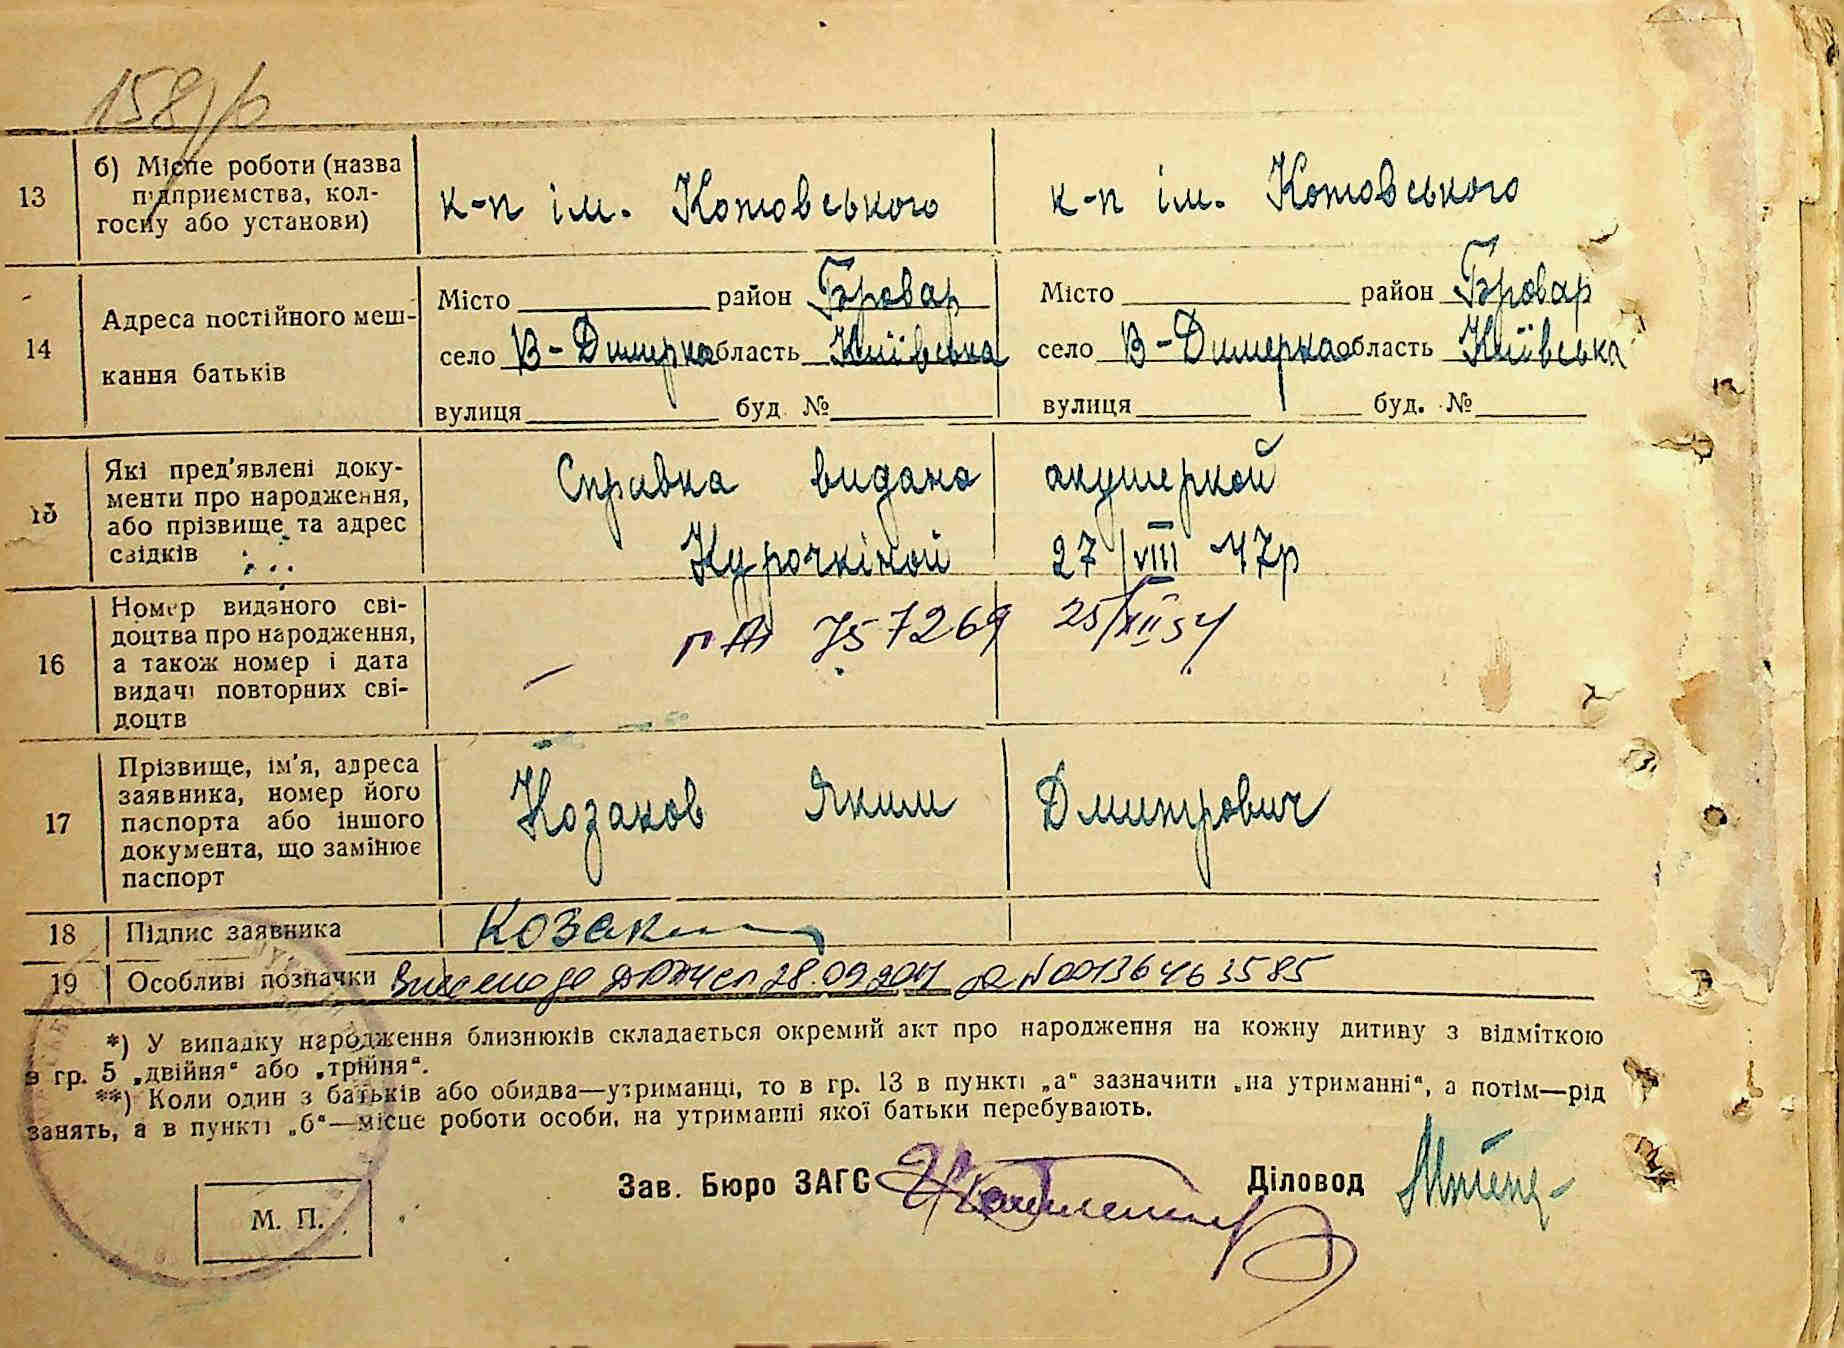 158
13 б) Місце роботи (назва
підприємства, кол-
госпу або установи)
к-п ім. Котовського к-п ім. Котовського
14 Адреса постійного меш-
кання батьків
Місто район Бровар Місто район Бровар
село В-Димерка область Київська село В-Димерка область Київська
вулиця буд. № вулиця буд. №
15 Які пред'явлені доку-
менти про народження,
або прізвище та адрес
свідків
Справка видана акушеркой
Курочкіной 27/VIII 47р
16 Номер виданого сві-
доцтва про народження,
а також номер і дата
видачі повторних сві-
доцтв
– 757269 25/XII 54
17 Прізвище, ім'я, адреса
заявника, номер його
паспорта або іншого
документа, що замінює
паспорт
Козаков Яким Дмитрович
18 Підпис заявника Козак
19 Особливі позначки 28.09.2011 №00136463585
*) У випадку народження близнюків складається окремий акт про народження на кожну дитину з відміткою
в гр. 5 „двійня“ або „трійня“.
**) Коли один з батьків або обидва—утриманці, то в гр. 13 в пункті „а“ зазначити „на утриманні“, а потім—рід
занять, а в пункті „б“—місце роботи особи, на утриманні якої батьки перебувають.
Зав. Бюро ЗАГС Діловод
М. П.